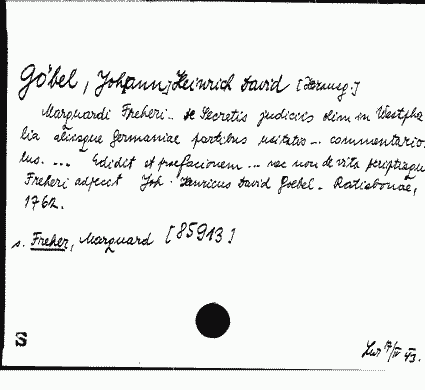 Göbel, Johann Heinrich David [Herausg.]
Marquardi Freheri.. de Secretis judiciis olim in Westpha
lia aliisque Germaniae partibus usitatis ... commentario-
lus. ... Edidit et praefacionem ... nec non de vita scriptisque
Freheri adjecit Joh. Henricus David Goebel. Ratisbonae,
1762.
s. Freher, Marquard [85913]
S
17/IV 43.